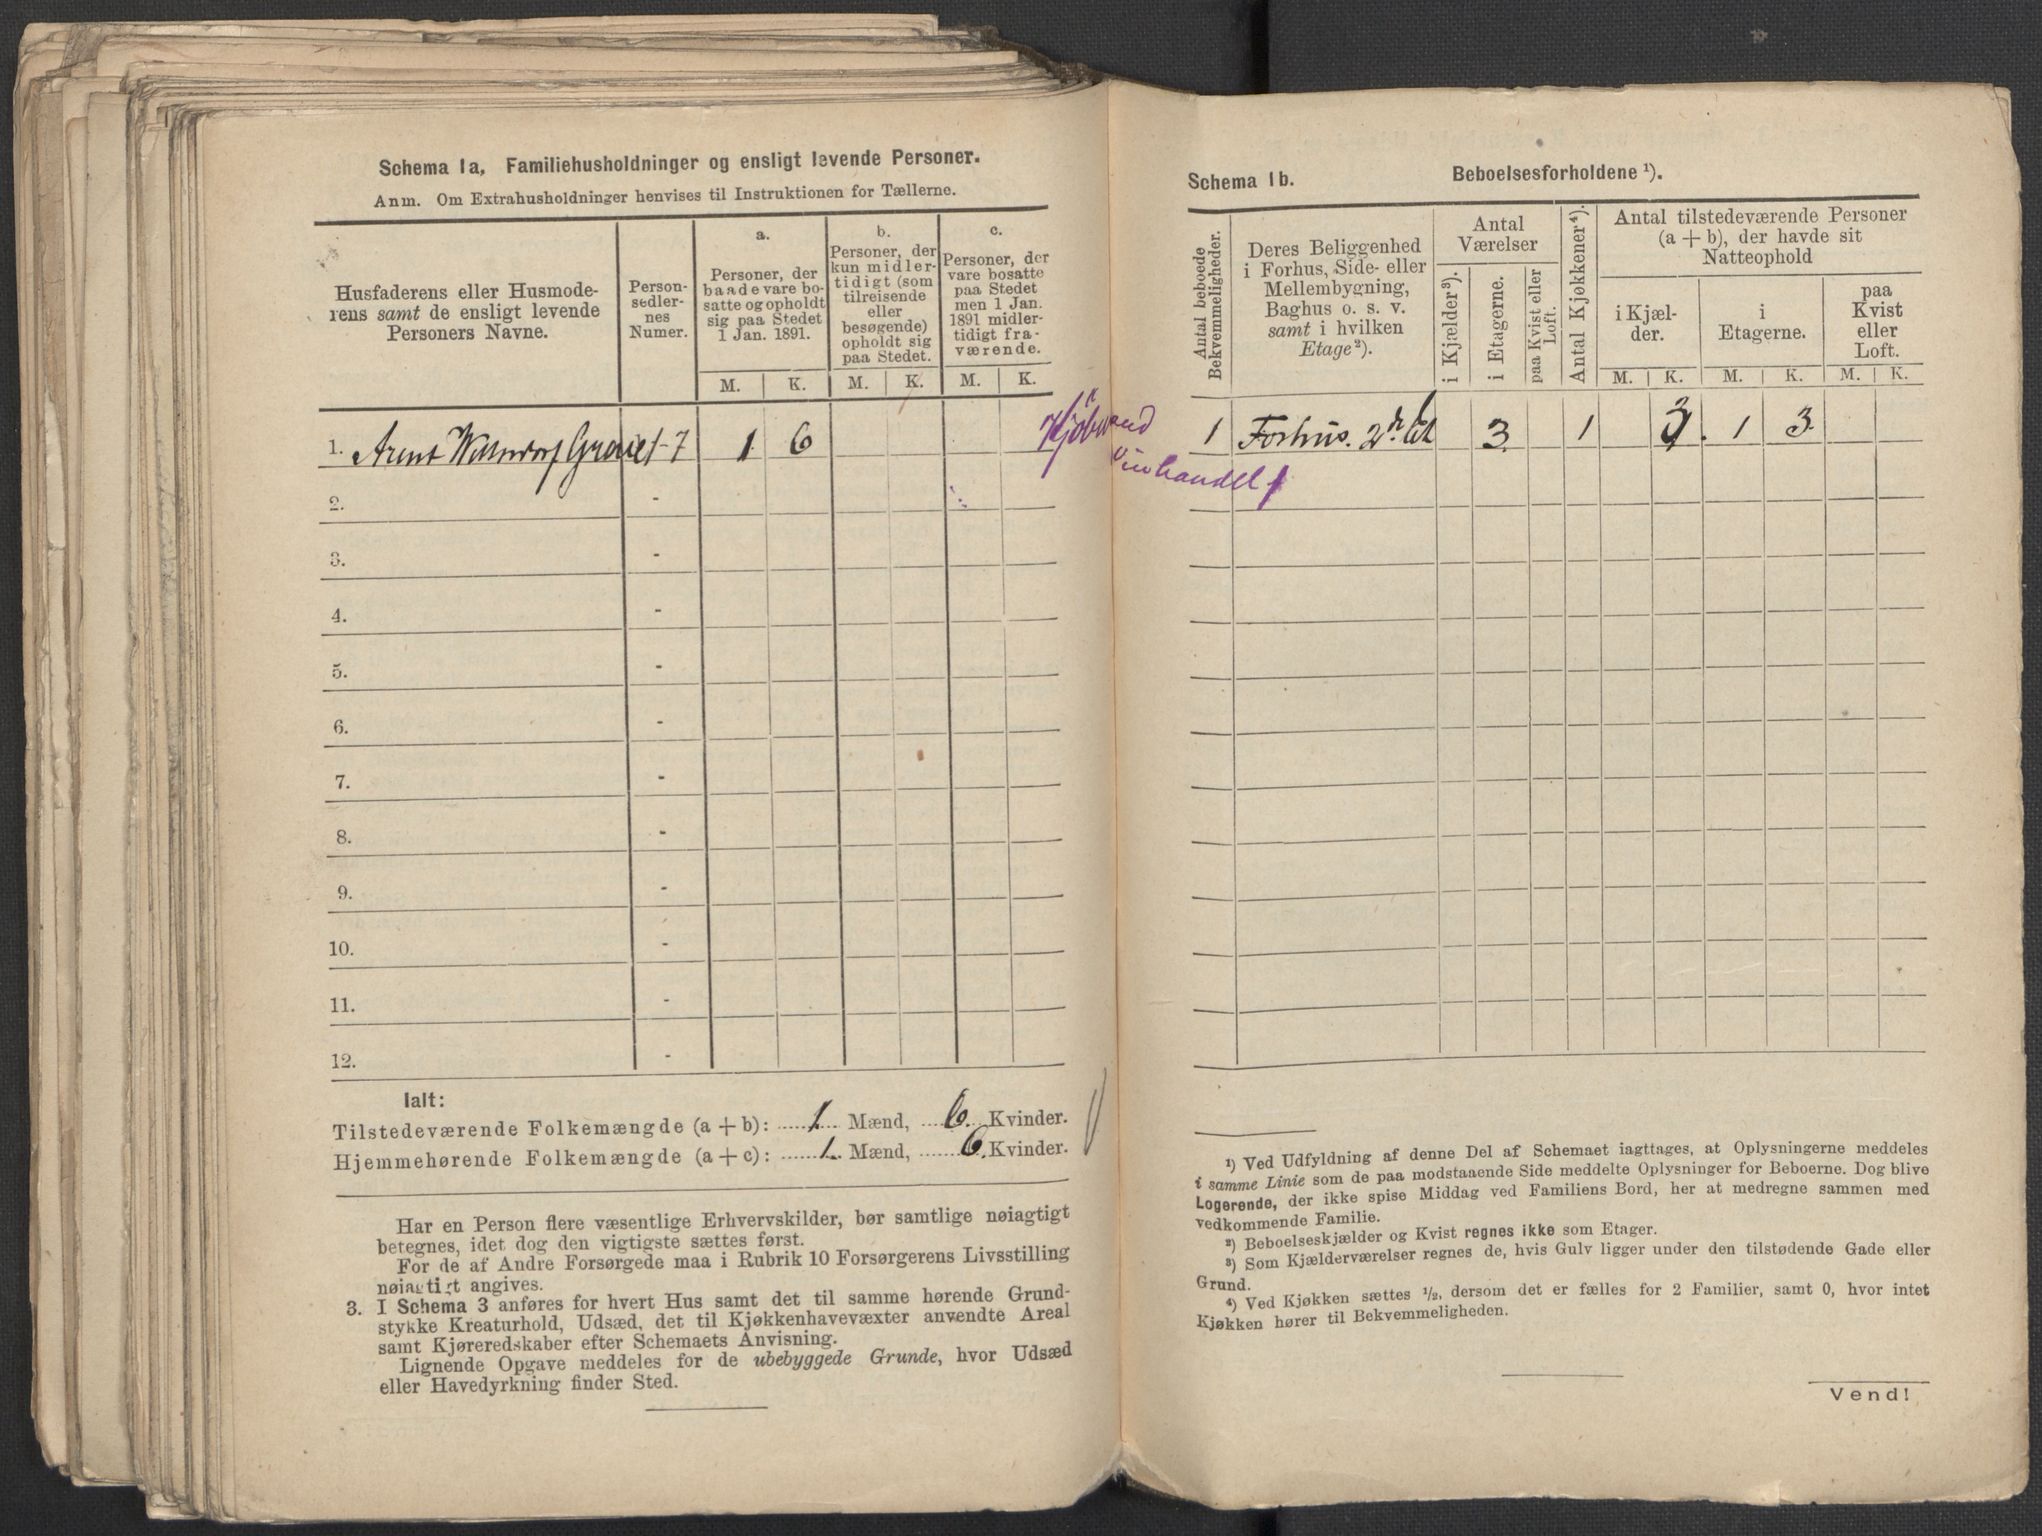 Schema 1a, Familiehusholdninger og ensligt levende Personer.
Anm. Om Extrahusholdninger henvises til Instruktionen for Tællerne.
Husfaderens eller Husmoderens samt de ensligt levende Personers Navne.
Person-sedlernes Numer.
a.
Personer, der baade vare bosatte og opholdt sig paa Stedet 1 Jan. 1891.
b.
Personer, der kun midlertidigt (som tilreisende eller besøgende) opholdt sig paa Stedet.
c.
Personer, der vare bosatte paa Stedet men 1 Jan. 1891 midlertidigt fraværende.
M. K. M. K. M. K.
1. Arent 1-7 1 6
2. -
3. -
4. -
5. -
6. -
7. -
8. -
9. -
10. -
11. -
12. -
Ialt:
Tilstedeværende Folkemængde (a + b): 1. Mænd, 6. Kvinder.
Hjemmehørende Folkemængde (a + c): 1. Mænd, 6. Kvinder.
Har en Person flere væsentlige Erhvervskilder, bør samtlige nøiagtigt
betegnes, idet dog den vigtigste sættes først.
For de af Andre Forsørgede maa i Rubrik 10 Forsørgerens Livsstilling
nøiagtigt angives.
3. I Schema 3 anføres for hvert Hus samt det til samme hørende Grund-
stykke Kreaturhold, Udsæd, det til Kjøkkenhavevæxter anvendte Areal
samt Kjøreredskaber efter Schemaets Anvisning.
Lignende Opgave meddeles for de ubebyggede Grunde, hvor Udsæd
eller Havedyrkning finder Sted.
Schema 1b. Beboelsesforholdene ¹).
Antal beboede Bekvemmeligheder.
Deres Beliggenhed
i Forhus, Side- eller
Mellembygning,
Baghus o. s. v.
samt i hvilken
Etage²).
Antal
Værelser
i Kjælder³).
i Etagerne.
paa Kvist eller Loft.
Antal Kjøkkener⁴).
Antal tilstedeværende Personer
(a + b), der havde sit
Natteophold
i Kjæl-
der.
i
Etagerne.
paa
Kvist
eller
Loft.
M. K. M. K. M. K.
1 Forhus. 2 3 1 3 1 3
Vinhandel
¹) Ved Udfyldning af denne Del af Schemaet iagttages, at Oplysningerne meddeles
i samme Linie som de paa modstaaende Side meddelte Oplysninger for Beboerne. Dog blive
Logerende, der ikke spise Middag ved Familiens Bord, her at medregne sammen med
vedkommende Familie.
²) Beboelseskjælder og Kvist regnes ikke som Etager.
³) Som Kjælderværelser regnes de, hvis Gulv ligger under den tilstødende Gade eller
Grund.
⁴) Ved Kjøkken sættes ½, dersom det er fælles for 2 Familier, samt 0, hvor intet
Kjøkken hører til Bekvemmeligheden.
Vend!